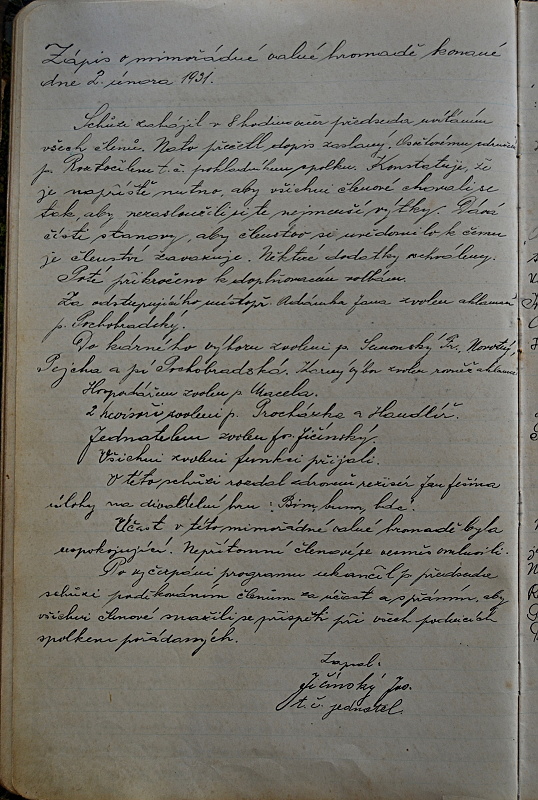 Zápis o mimořádné valné hromadě konané
dne 2. února 1931.
Schůzi zahájil v 8 hodin večer předseda uvítáním
všech členů. Nato přečetl dopis zaslaný Osvětovému
p. Roztočilem t. č. pokladníkem spolku. Konstatuje, že
je napříště nutno, aby všichni členové chovali se
tak, aby nezasloučili si té nejmenší výtky. Dává
čísti stanovy, aby členstvo se uvědomilo k čemu
je členství zavazuje. Některé dodatky schváleny.
Poté přikročeno k doplňovacím volbám.
Za odstupujícího místopř. Adámka Jana zvolen aklamací
p. Pochobradský.
Do kárného výboru zvoleni p. Fr., Novotný,
Pejcha a pí Pochobradská. výbor zvolen rovněž
Hospodářem zvolen p. Macela.
2 revisoři zvoleni p. Procházka a Handlíř.
Jednatelem zvolen Jičínský.
Všichni zvolení funkci přijali.
V této schůzi rozdal zdravou režisér Jan Ješina
úlohy na divadelní hru: Bim, bum, bác.
Účast v této mimořádné valné hromadě byla
uspokojující. Nepřítomní členové se omluvili.
Po vyčerpání programu ukončil p. předseda
schůzi poděkováním členům za účast a s přáním, aby
všichni členové snažili se přispěti při všech podnicích
spolkem pořádaných.
Zapsal:
Jičínský Jos.
t. č. jednatel.